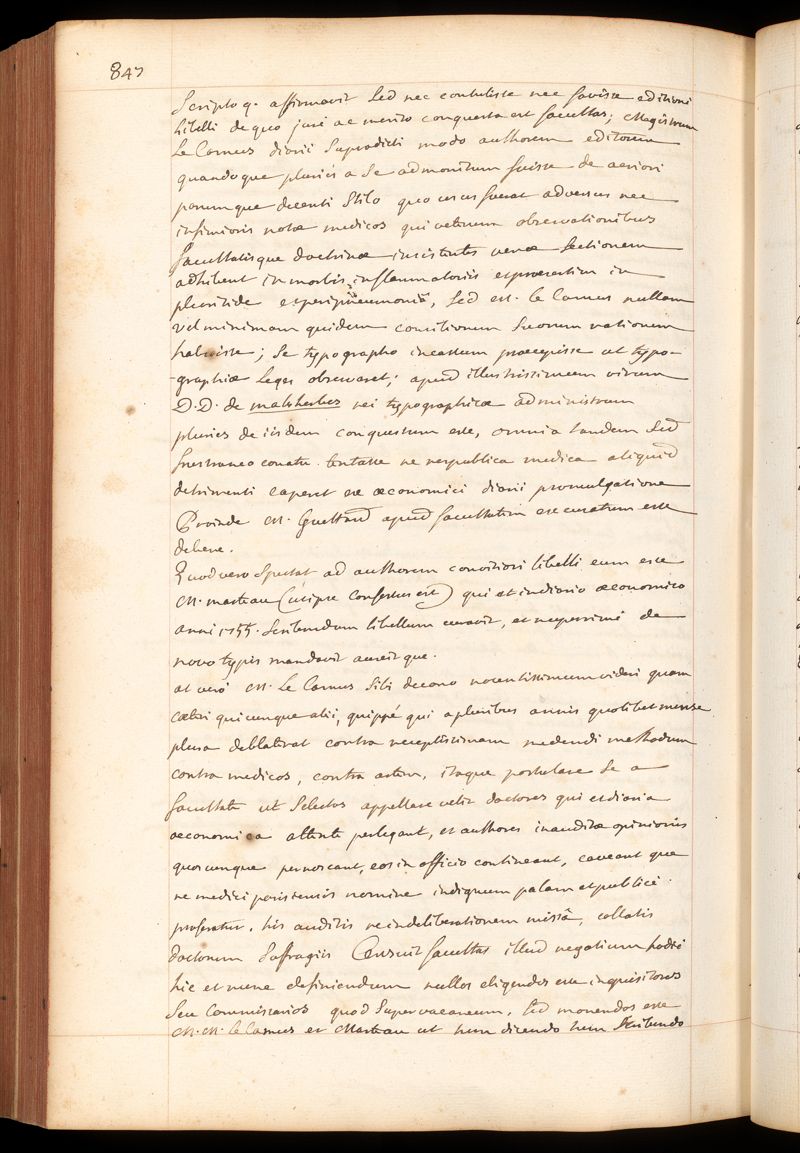 847
Scriptoq. affirmavit sed nec contulisse nec favisse editioni
libelli de quo juré ac merito conquesta est facultas; Magistrum
Le Camus diarii supradicti modo authorem editorem
quandoque pluriés a se admonitum fuisse de acriori
parumque decenti stilo quo usus fuerat adversus nec
infimioris notae medicos qui veterum observationibus
facultatisque doctrinae insistentes venae sectionem
adhibent in morbis inflammatoriis et praesertim in
pleuritide et peripneumoniâ, sed M. le Camus nullam
vel minimam quidem consiliorum suorum rationem
habuisse; se typographo incassum praecepisse ut typo-
-graphiae leges observaret; apud illustrissimum virum
D.D. de malsherbes rei typographicae administrum
pluries de iisdem conquestum esse, omnia tandem sed
frustraneo conatu tentasse ne respublica medica aliquid
detrimenti caperet ex oeconomici diarii promulgatione
Proinde M. Guettard apud facultatem excusatum esse
debere.
Quod vero spectat ad authorem convitiori libelli eum esse
M. marteau (utipse confessus est) qui et in diario oeconomico
anni 1755. scribendum libellum curavit, et nuperrimé de
novo typis mandavit auxitque.
at veró M. Le Camus sibi decano nocentissimum videri quam
caeteri quicunque alii, quippé qui a pluribus annis quotlibet mense
plura deblaterat contra receptissimam medendi methodum
contra medicos, contra artem, itaque postulare se a
facultate ut selectos appellare velit doctores qui et diaria
oeconomica attente perlegant, et authores inauditae opinionis
quoscunque pernoscant, eos in officio contineant, caveant que
ne medici parisiensis nomine indignum palam et publicé
proferatur. his auditis re in deliberationem missâ, collatis
doctorum suffragiis Censuit facultas illud negotium hodié
hic et nunc definiendum nullos eligendos esse inquisitores
seu Commissarios quod supervacaneum, sed monendos esse
M.M. le Camus et Marteau ut tum dicendo tum scribendo